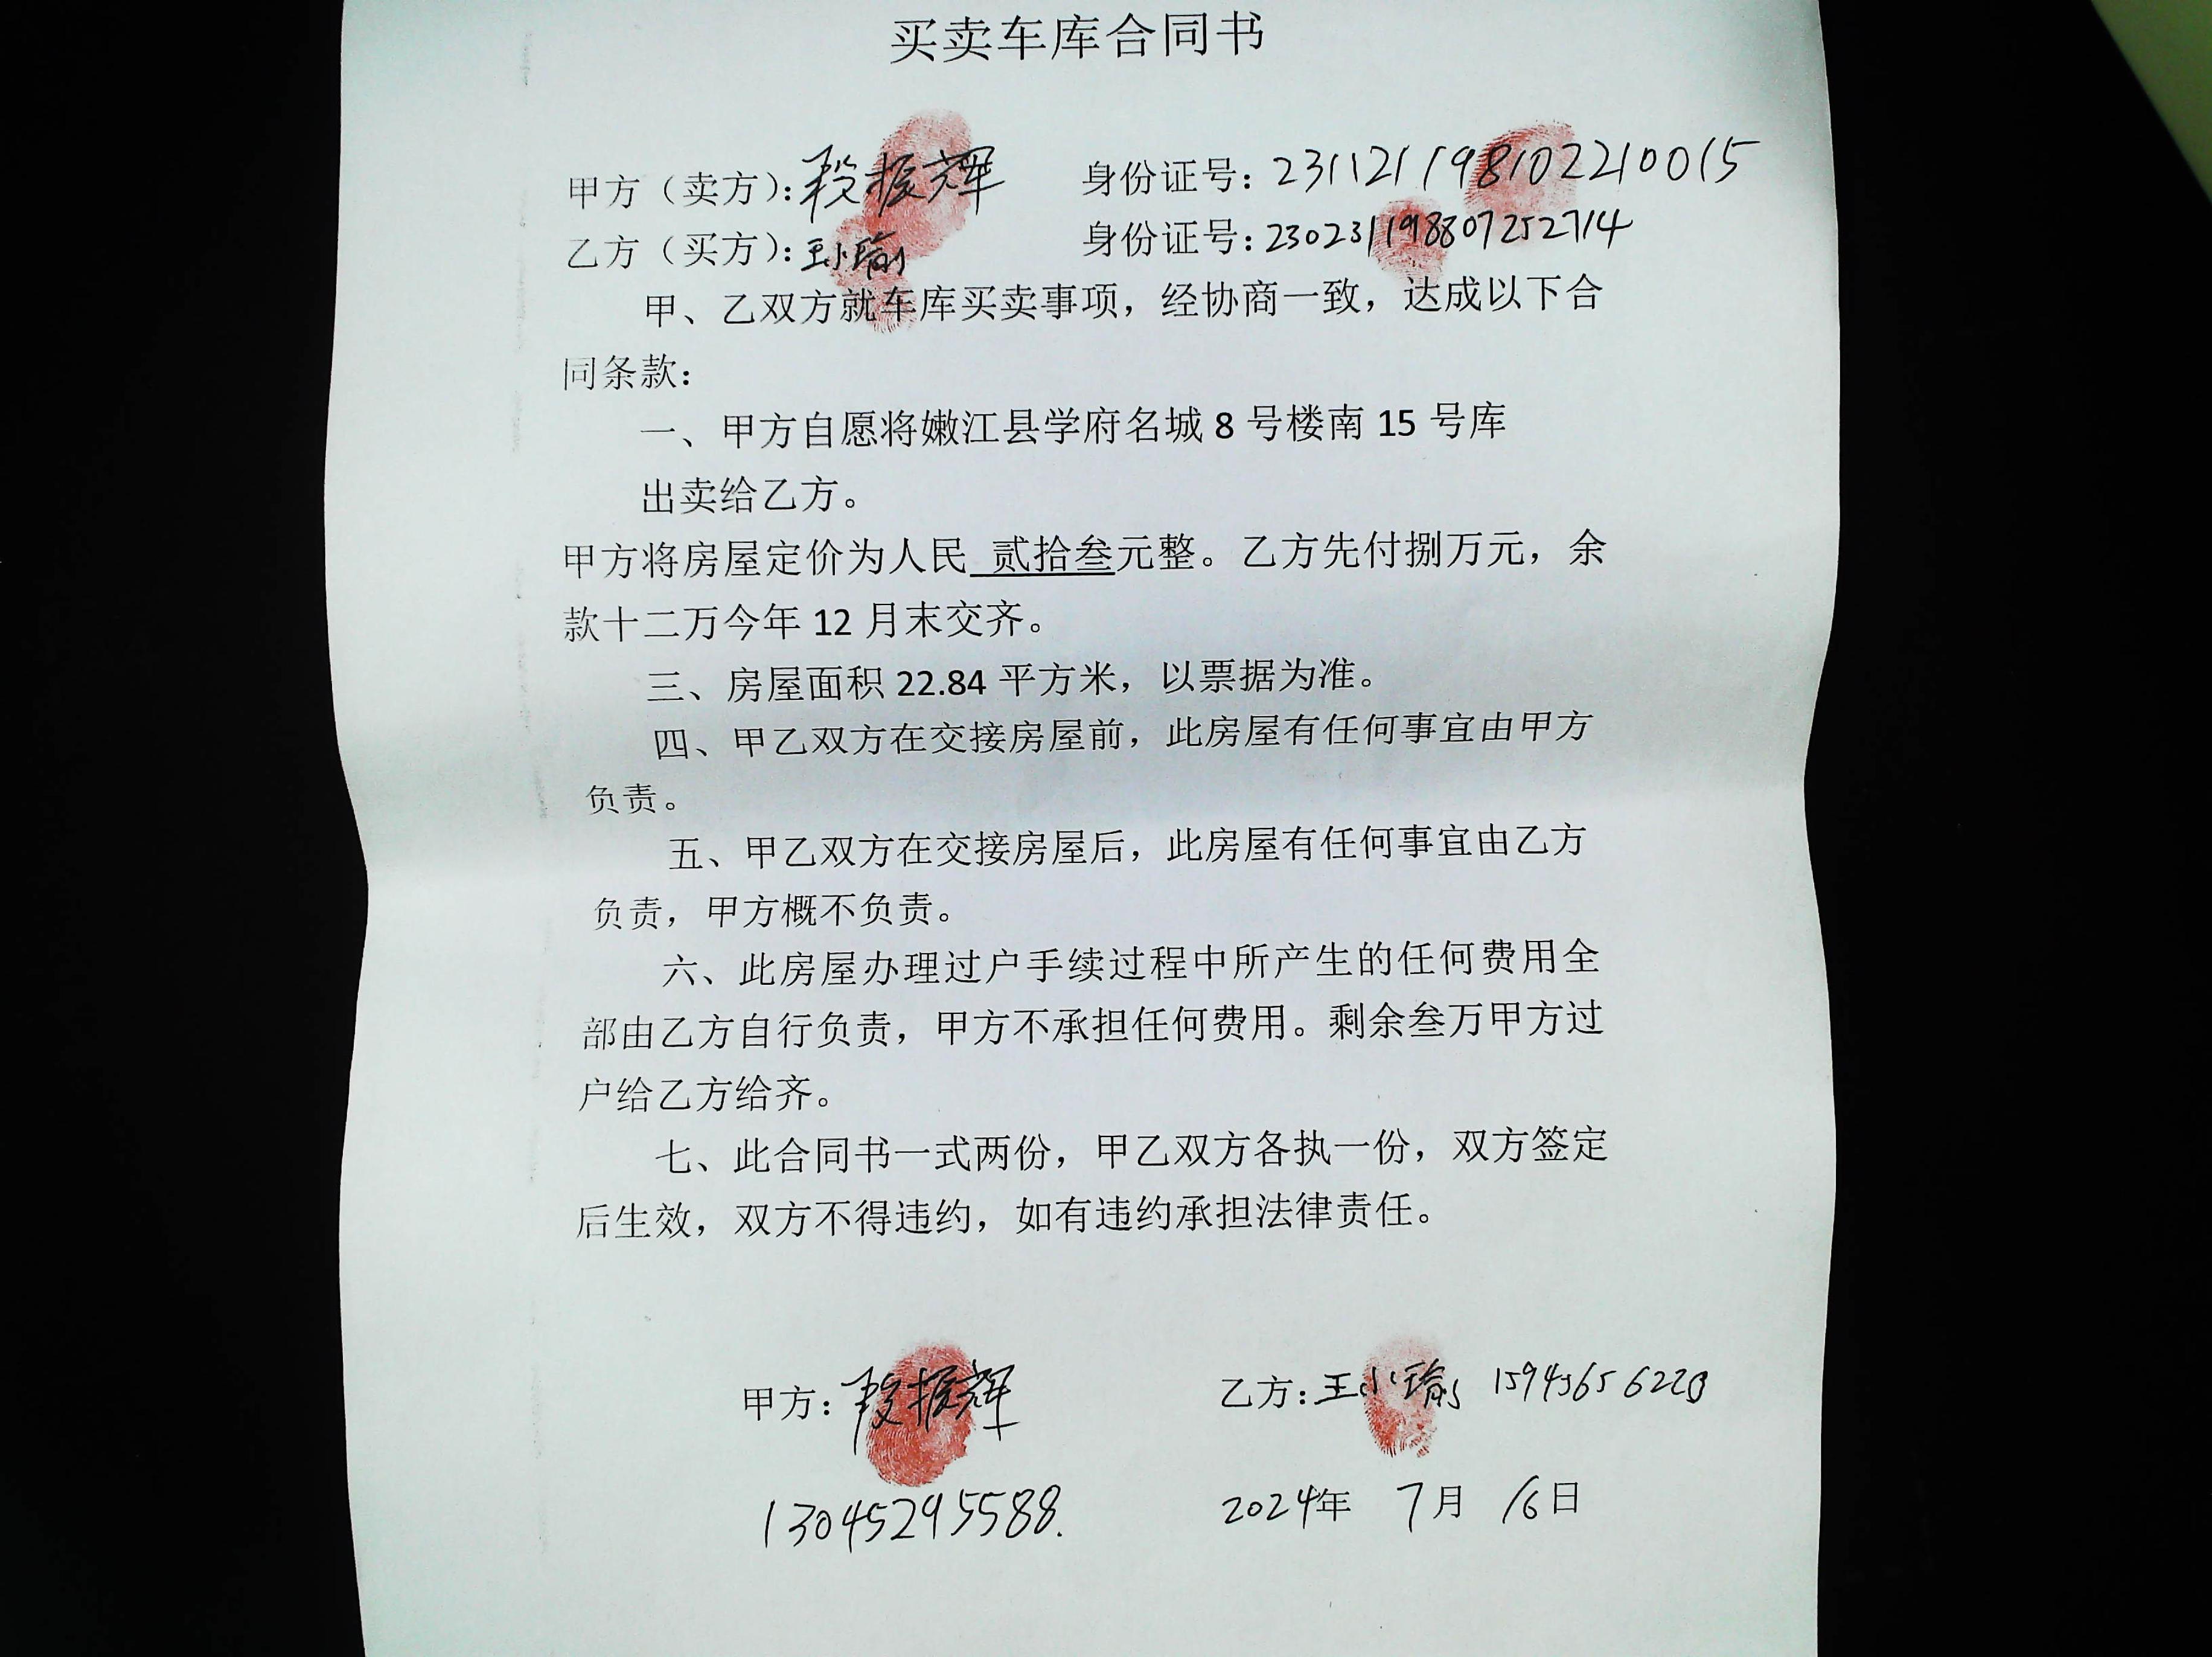 买卖车库合同书
甲方（卖方）：段振辉 身份证号：231121198102210015
乙方（买方）：王小瑜 身份证号：230231198807252714
甲、乙双方就车库买卖事项，经协商一致，达成以下合
同条款：
一、甲方自愿将嫩江县学府名城 8 号楼南 15 号库
出卖给乙方。
甲方将房屋定价为人民 贰拾叁元整。乙方先付捌万元，余
款十二万今年 12 月末交齐。
三、房屋面积 22.84 平方米，以票据为准。
四、甲乙双方在交接房屋前，此房屋有任何事宜由甲方
负责。
五、甲乙双方在交接房屋后，此房屋有任何事宜由乙方
负责，甲方概不负责。
六、此房屋办理过户手续过程中所产生的任何费用全
部由乙方自行负责，甲方不承担任何费用。剩余叁万甲方过
户给乙方给齐。
七、此合同书一式两份，甲乙双方各执一份，双方签定
后生效，双方不得违约，如有违约承担法律责任。
甲方：段振辉 乙方：王小瑜
13045295588. 2024年 7月 16日